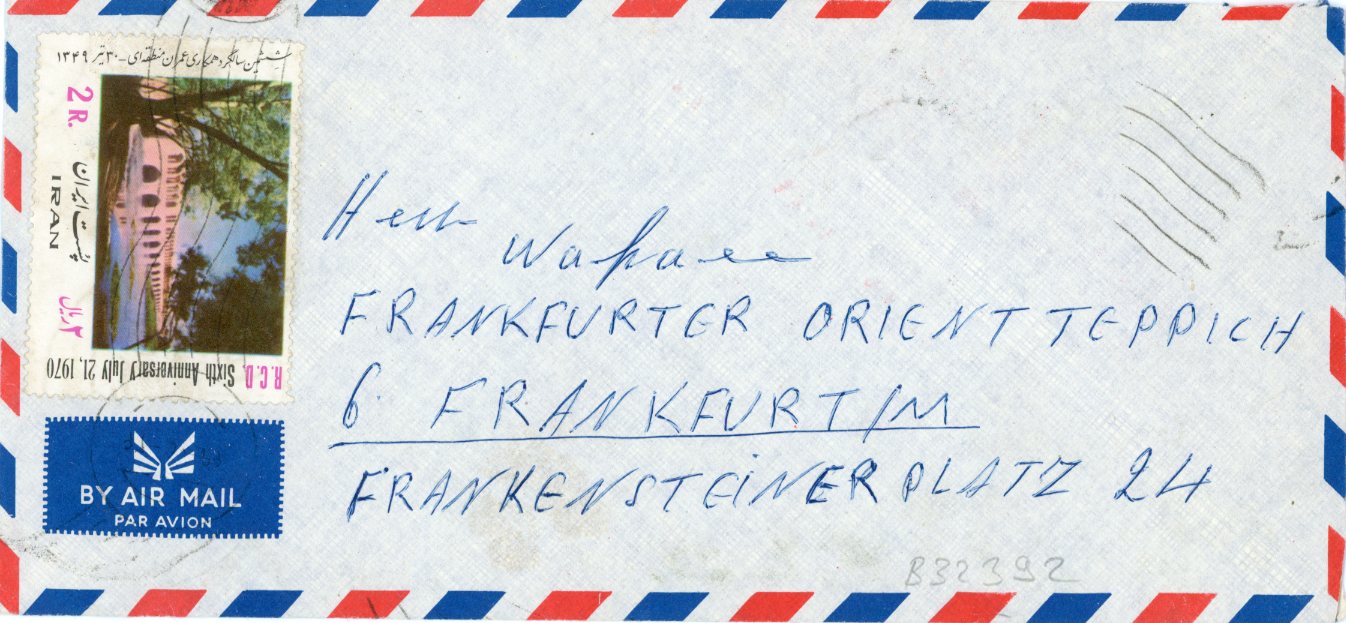 ششمین سالگرد همکاری عمران منطقه‌ای - ۳۰ تیر ۱۳۴۹
2 R.
پست ایران
IRAN
۲ ریال
R.C.D. Sixth Anniversary July 21, 1970
BY AIR MAIL
PAR AVION
Herr
Wafaee
FRANKFURTER ORIENT TEPPICH
6 FRANKFURT/M
FRANKENSTEINER PLATZ 24
B32392